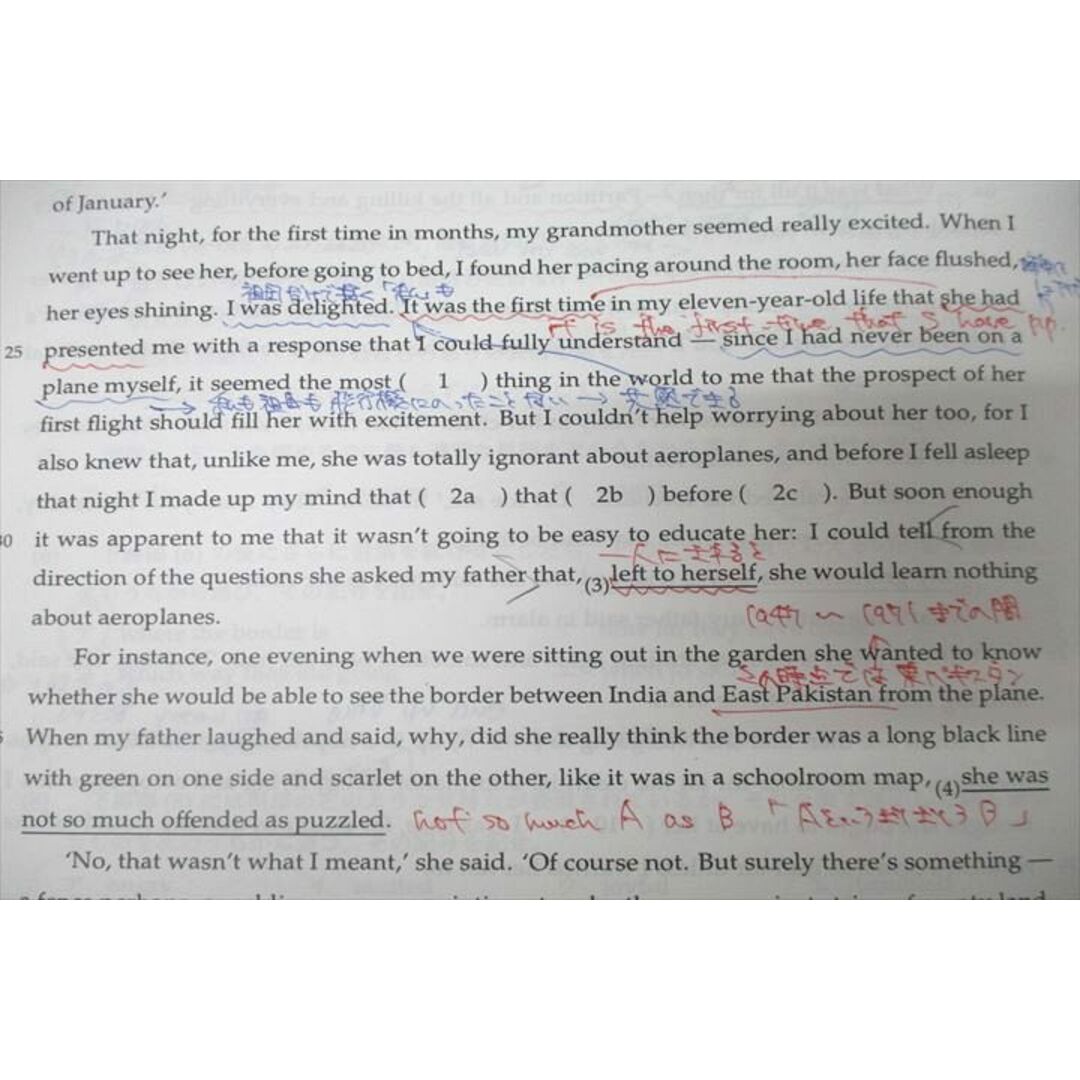 of January.'
That night, for the first time in months, my grandmother seemed really excited. When I
went up to see her, before going to bed, I found her pacing around the room, her face flushed,
祖母だけで無く「私」も
her eyes shining. I was delighted. It was the first time in my eleven-year-old life that she had
It is the first time that S have p.p.
25 presented me with a response that I could fully understand — since I had never been on a
plane myself, it seemed the most ( 1 ) thing in the world to me that the prospect of her
→ 私も祖母も飛行機にのったことない →
first flight should fill her with excitement. But I couldn't help worrying about her too, for I
also knew that, unlike me, she was totally ignorant about aeroplanes, and before I fell asleep
that night I made up my mind that ( 2a ) that ( 2b ) before ( 2c ). But soon enough
30 it was apparent to me that it wasn't going to be easy to educate her: I could tell from the
一人にすると
direction of the questions she asked my father that, (3)left to herself, she would learn nothing
about aeroplanes.
1947 〜 1971 までの間
For instance, one evening when we were sitting out in the garden she wanted to know
この時点では東パキスタン
whether she would be able to see the border between India and East Pakistan from the plane.
When my father laughed and said, why, did she really think the border was a long black line
with green on one side and scarlet on the other, like it was in a schoolroom map, (4)she was
not so much offended as puzzled. not so much A as B 「AというよりむしろB」
'No, that wasn't what I meant,' she said. 'Of course not. But surely there's something —